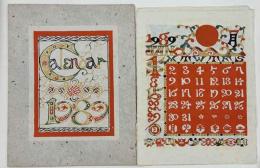 Calendar
1989
1989 一月
S M T W T F S
1 2 3 4 5 6 7
8 9 10 11 12 13 14
15 16 17 18 19 20 21
22 23 24 25 26 27 28
29 30 31